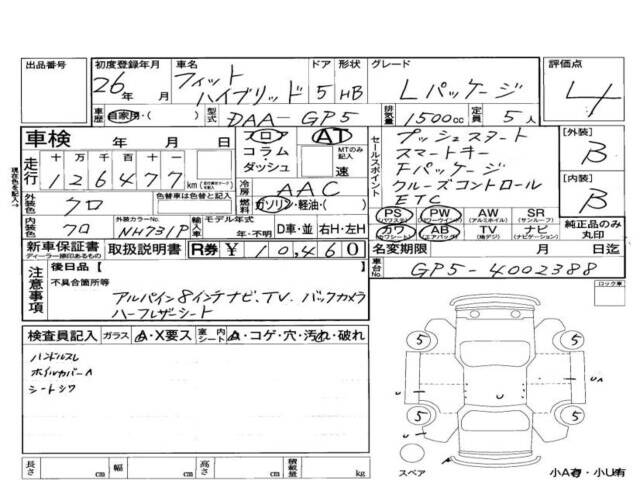 出品番号 初度登録年月 車名 ドア 形状 グレード 評価点
26年 月 フィット ハイブリッド 5 HB Lパッケージ 4
車歴 自家用・( ) 型式 DAA-GP5 排気量 1500cc 定員 5人
車検 年 月 日 フロア AT セールスポイント プッシュスタート [外装]
コラム・ MTのみ記入 スマートキー B
走行 十 万 千 百 十 一 ダッシュ 速 Fパッケージ
126477km 冷房 AAC クルーズコントロール [内装]
外装色 クロ 色替車は色替前の色を記入 燃料 ガソリン・軽油・( ) ETC B
現在色を記入→
内装色 クロ 外装カラーNo. NH731P 輸入車 モデル年式 年・不明 D車・並 右H・左H
PS (パワステ) PW (パワーウインド) AW (アルミホイル) SR (サンルーフ) 純正品のみ丸印
カワ (カワシート) AB (エアバッグ) TV (地デジ) ナビ (ナビゲーション)
新車保証書 取扱説明書 R券 ¥ 10,460 名変期限 月 日迄
ディーラー捺印あるもの
注意事項 後日品【 】 車台No. GP5-4002388
不具合箇所等 ロック車
アルパイン8インチナビ、TV、バックカメラ
ハーフレザーシート
検査員記入 ガラス A・X要ス 室内シート A・コゲ・穴・汚れ・破れ
ハンドルスレ
ホイルカバーA
シートシワ
5 5
U UA
5 5
A
スペア 小A有・小U有
長さ cm 幅 cm 高さ cm 積載量 kg